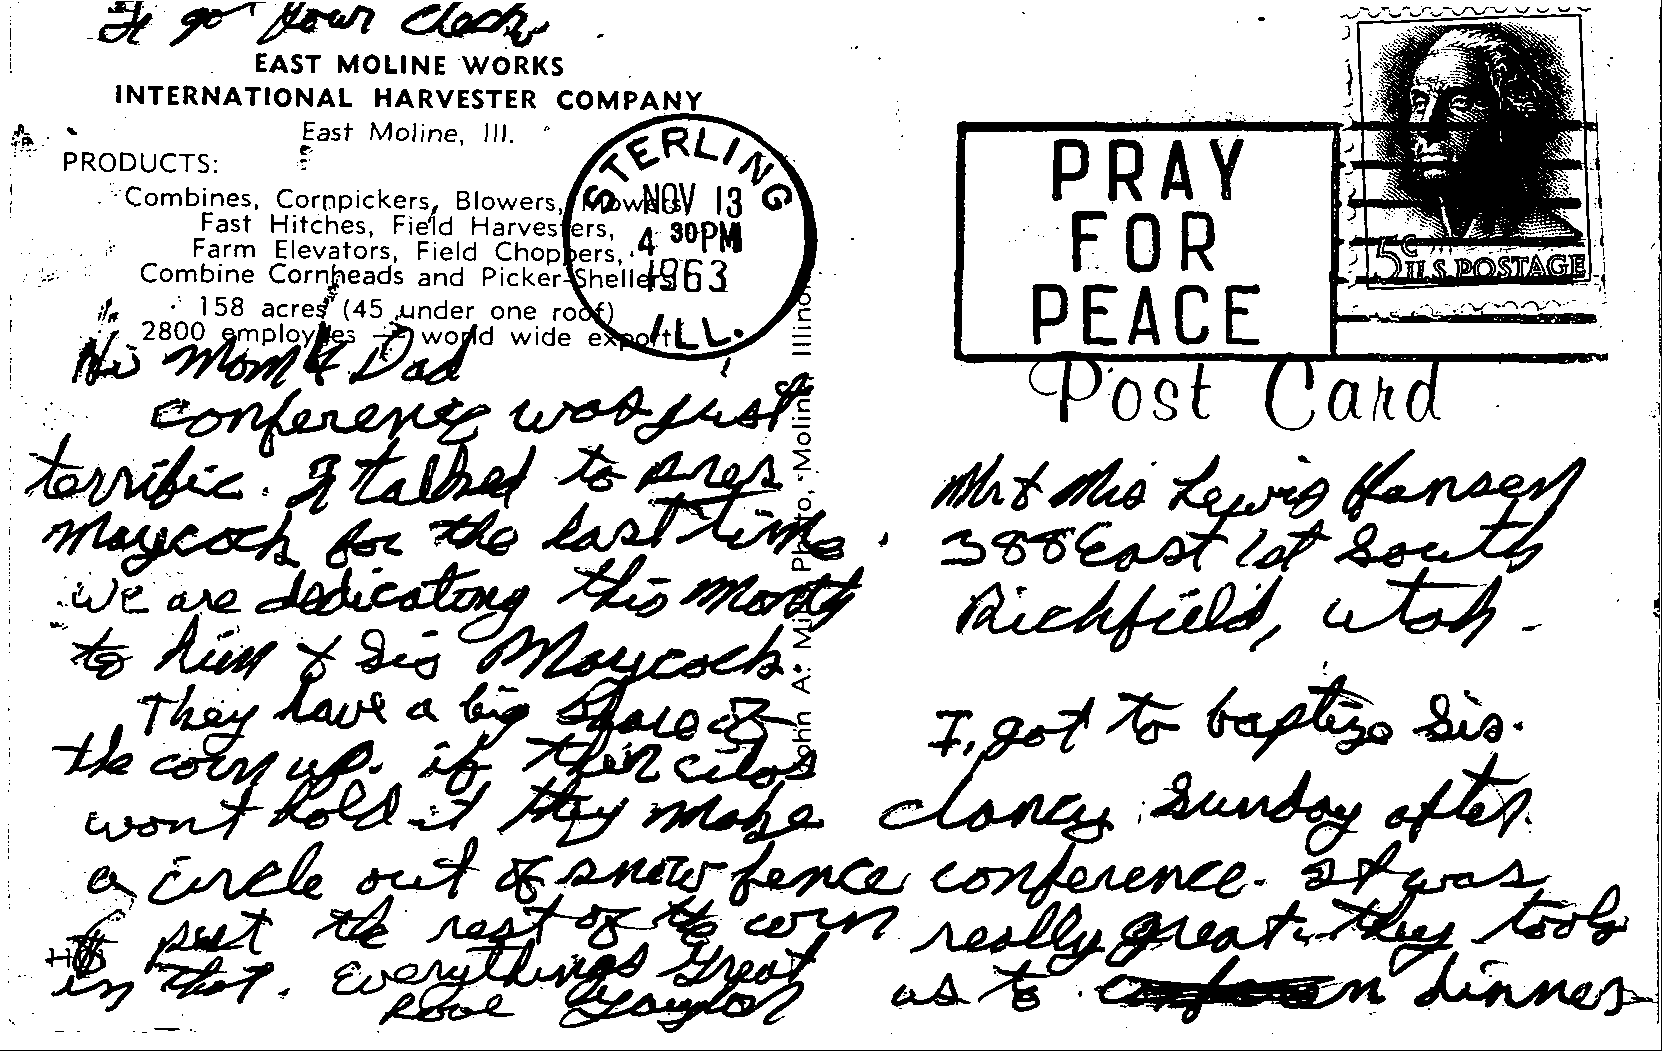 go your clock
EAST MOLINE WORKS
INTERNATIONAL HARVESTER COMPANY
East Moline, Ill.
PRODUCTS:
Combines, Cornpickers, Blowers, Mowers,
Fast Hitches, Field Harvesters,
Farm Elevators, Field Choppers,
Combine Cornheads and Picker-Shellers
158 acres (45 under one roof)
2800 employees — world wide export
STERLING
NOV 13
4 30PM
1963
ILL.
PRAY
FOR
PEACE
5c U.S. POSTAGE
Post Card
Hi Mom & Dad
conference was just
terrific. I talked to pres
Maycock for the last time.
we are dedicating this month
to him & Sis Maycock.
They have a big share of
the corn up. if their cilos
wont hold it they make
a circle out of snow fence
& put the rest of the corn
in that. Everythings Great
Love Gaylon
John A. Photo, Moline, Illinois
Mr & Mrs Lewis Hansen
388 East 1st South
Richfield, Utah.
I, got to baptize Sis.
clancy Sunday after
conference. It was
really great. they took
us to dinner